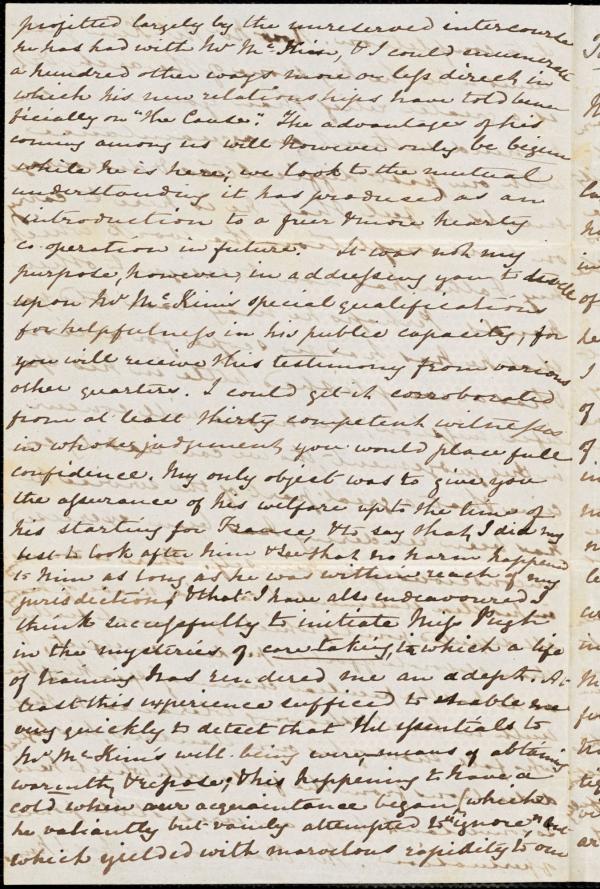 profitted largely by the unreserved intercourse
he has had with Mr McKim, & I could enumerate
a hundred other ways more or less direct, in
which his new relationships have told bene
ficially on "the Cause". The advantages of his
coming among us will however only be begun
while he is here; we look to the mutual
understanding it has produced as an
introduction to a freer & more hearty
co operation in future. It was not my
purpose, however, in addressing you to dwell
upon Mr McKim's special qualifications
for helpfulness in his public capacity, for
you will receive this testimony from various
other quarters. I could get it corroborated
from at least thirty competent witnesses
in whose judgement you would place full
confidence. My only object was to give you
the assurance of his welfare up to the time of
his starting for France, & to say that I did my
best to look after him & see that no harm happened
to him as long as he was within reach of my
jurisdiction, & that I have also endeavoured I
think successfully to initiate Miss Pugh
in the mysteries of care taking, in which a life
of training has rendered me an adept. At
least this experience sufficed to enable me
very quickly to detect that the essentials to
Mr McKim's well being were, means of obtaining
warmth, & repose; & this happening to have a
cold when our acquaintance began (which
he valiantly but vainly attempted to "ignore", but
which yielded with marvelous rapidity to our